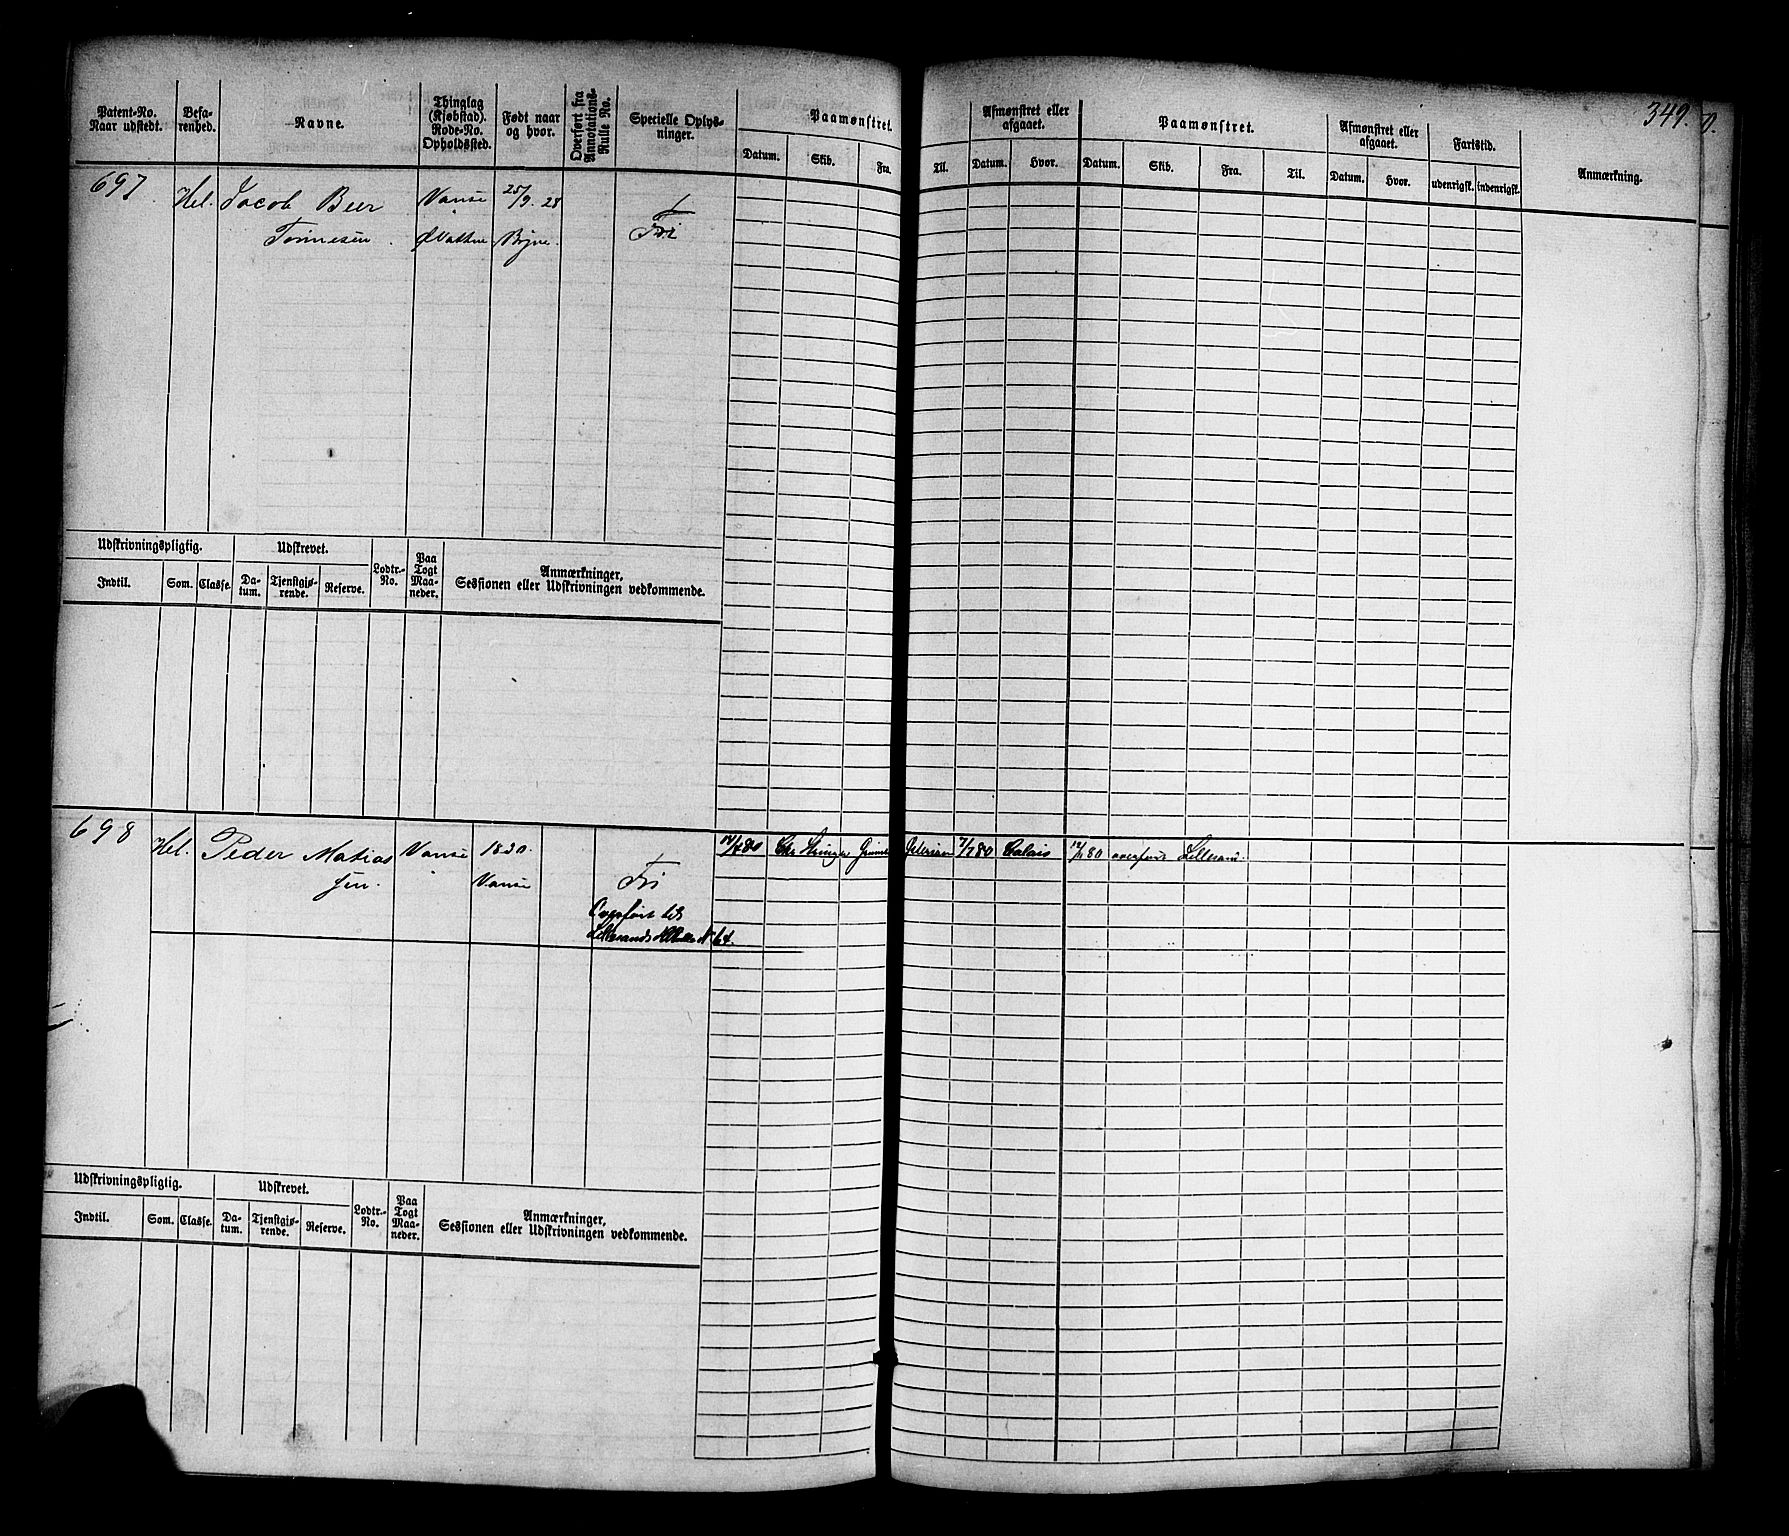 349.
Patent-No. Naar udstedt. Befarenhed. Navne. Thinglag (Kjøbstad). Rode-No. Opholdssted. Født naar og hvor. Overført fra Annotations-Rulle No. Specielle Oplysninger. Paamønstret. Afmønstret eller afgaaet. Paamønstret. Afmønstret eller afgaaet. Fartstid. Anmærkning.
Datum. Skib. Fra. Til. Datum. Hvor. Datum. Skib. Fra. Til. Datum. Hvor. udenrigsk. indenrigsk.
697 Hel. Jacob Beer Vanse 25/9 28
Tønnesen. Bryne. Fri
Udskrivningspligtig. Udskrevet. Lodtr.-No. Paa Togt Maaneder. Anmærkninger, Sessionen eller Udskrivningen vedkommende.
Indtil. Som. Classe. Datum. Tjenstgjørende. Reserve.
698 Hel. Peder Matias Vanse 1830 7/7 80 Calais 80 Lillesand.
sen. Vanse Fri
Opført til
Lillesands No 64.
Udskrivningspligtig. Udskrevet. Lodtr.-No. Paa Togt Maaneder. Anmærkninger, Sessionen eller Udskrivningen vedkommende.
Indtil. Som. Classe. Datum. Tjenstgjørende. Reserve.